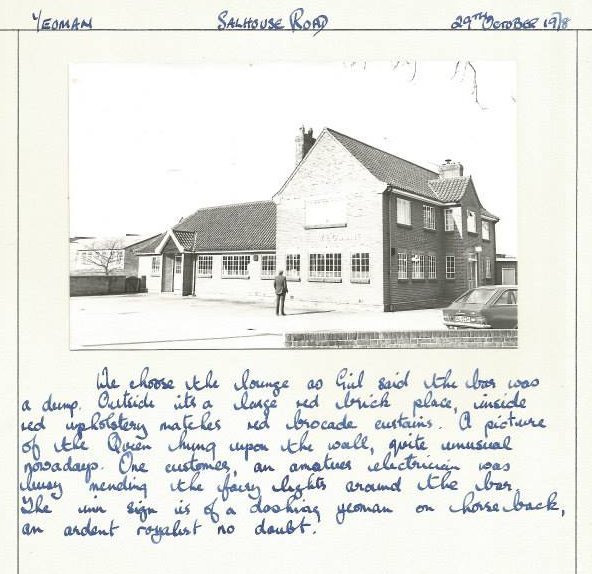 YEOMAN SALHOUSE ROAD 29TH OCTOBER 1978
YEOMAN
We choose the lounge as Gil said the bar was
a dump. Outside its a large red brick place, inside
red upholstery matches red brocade curtains. A picture
of the Queen hung upon the wall, quite unusual
nowadays. One customer, an amatues electrician was
busy mending the fairy lights around the bar.
The inn sign is of a dashing yeoman on horse back,
an ardent royalist no doubt.